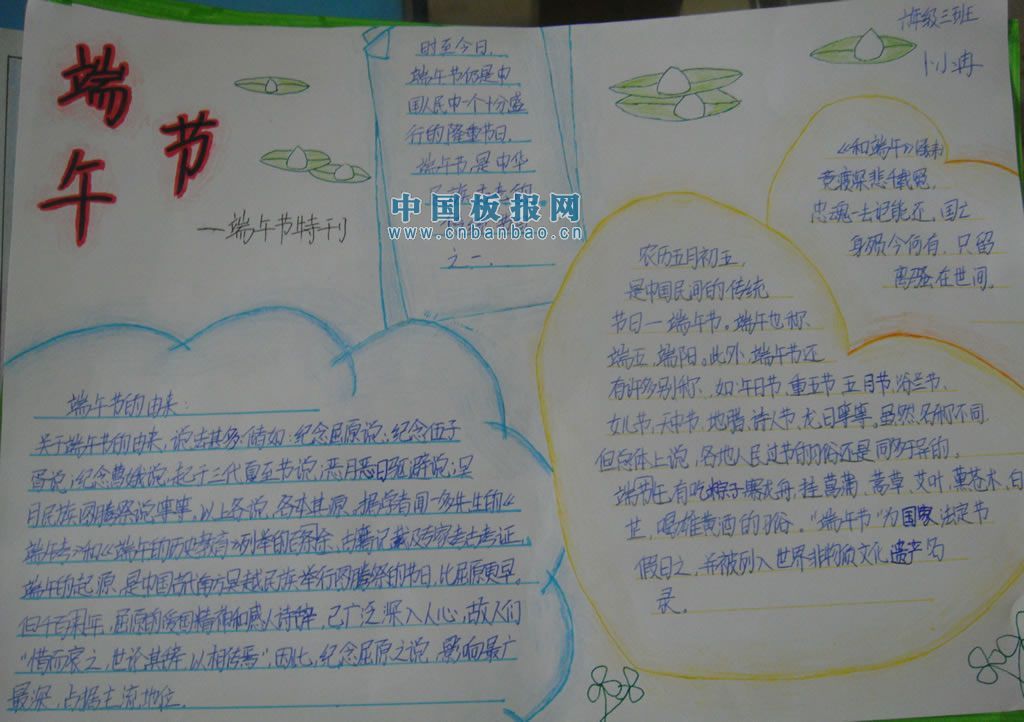 端
午
节
—端午节特刊
时至今日，
端午节仍是中
国人民中一个十分盛
行的隆重节日。
端午节是中华
之一。
中国板报网
www.cnbanbao.cn
六年级三班
卜小冉
《和端午》
竞渡深悲千载冤，
忠魂一去讵能还，国亡
身殒今何有，只留
离骚在世间。
农历五月初五，
是中国民间的传统
节日—端午节。端午也称
端五，端阳。此外，端午节还
有许多别称，如：午日节、重五节、五月节、浴兰节、
女儿节、天中节、地腊、诗人节、龙日等等。虽然名称不同
但总体上说，各地人民过节的习俗还是同多于异的。
端午节有吃粽子，赛龙舟，挂菖蒲、蒿草、艾叶，薰苍术、白
芷，喝雄黄酒的习俗。“端午节”为国家法定节
假日之，并被列入世界非物质文化遗产名
录。
端午节的由来：
关于端午节的由来，说法甚多，诸如：纪念屈原说；纪念伍子
胥说；纪念曹娥说；起于三代夏至节说；恶月恶日驱避说；吴
月民族图腾祭说等等。以上各说，各本其源。据学者闻一多先生的《
端午考》和《端午的历史教育》列举的 古籍记载及专家考古考证，
端午的起源，是中国古代南方吴越民族举行图腾祭的节日，比屈原更早。
但千百年，屈原的爱国精神和感人诗辞，已广泛深入人心，故人们
“惜而哀之，世论其辞，以相传焉”，因此，纪念屈原之说，影响最广
最深，占据主流地位。